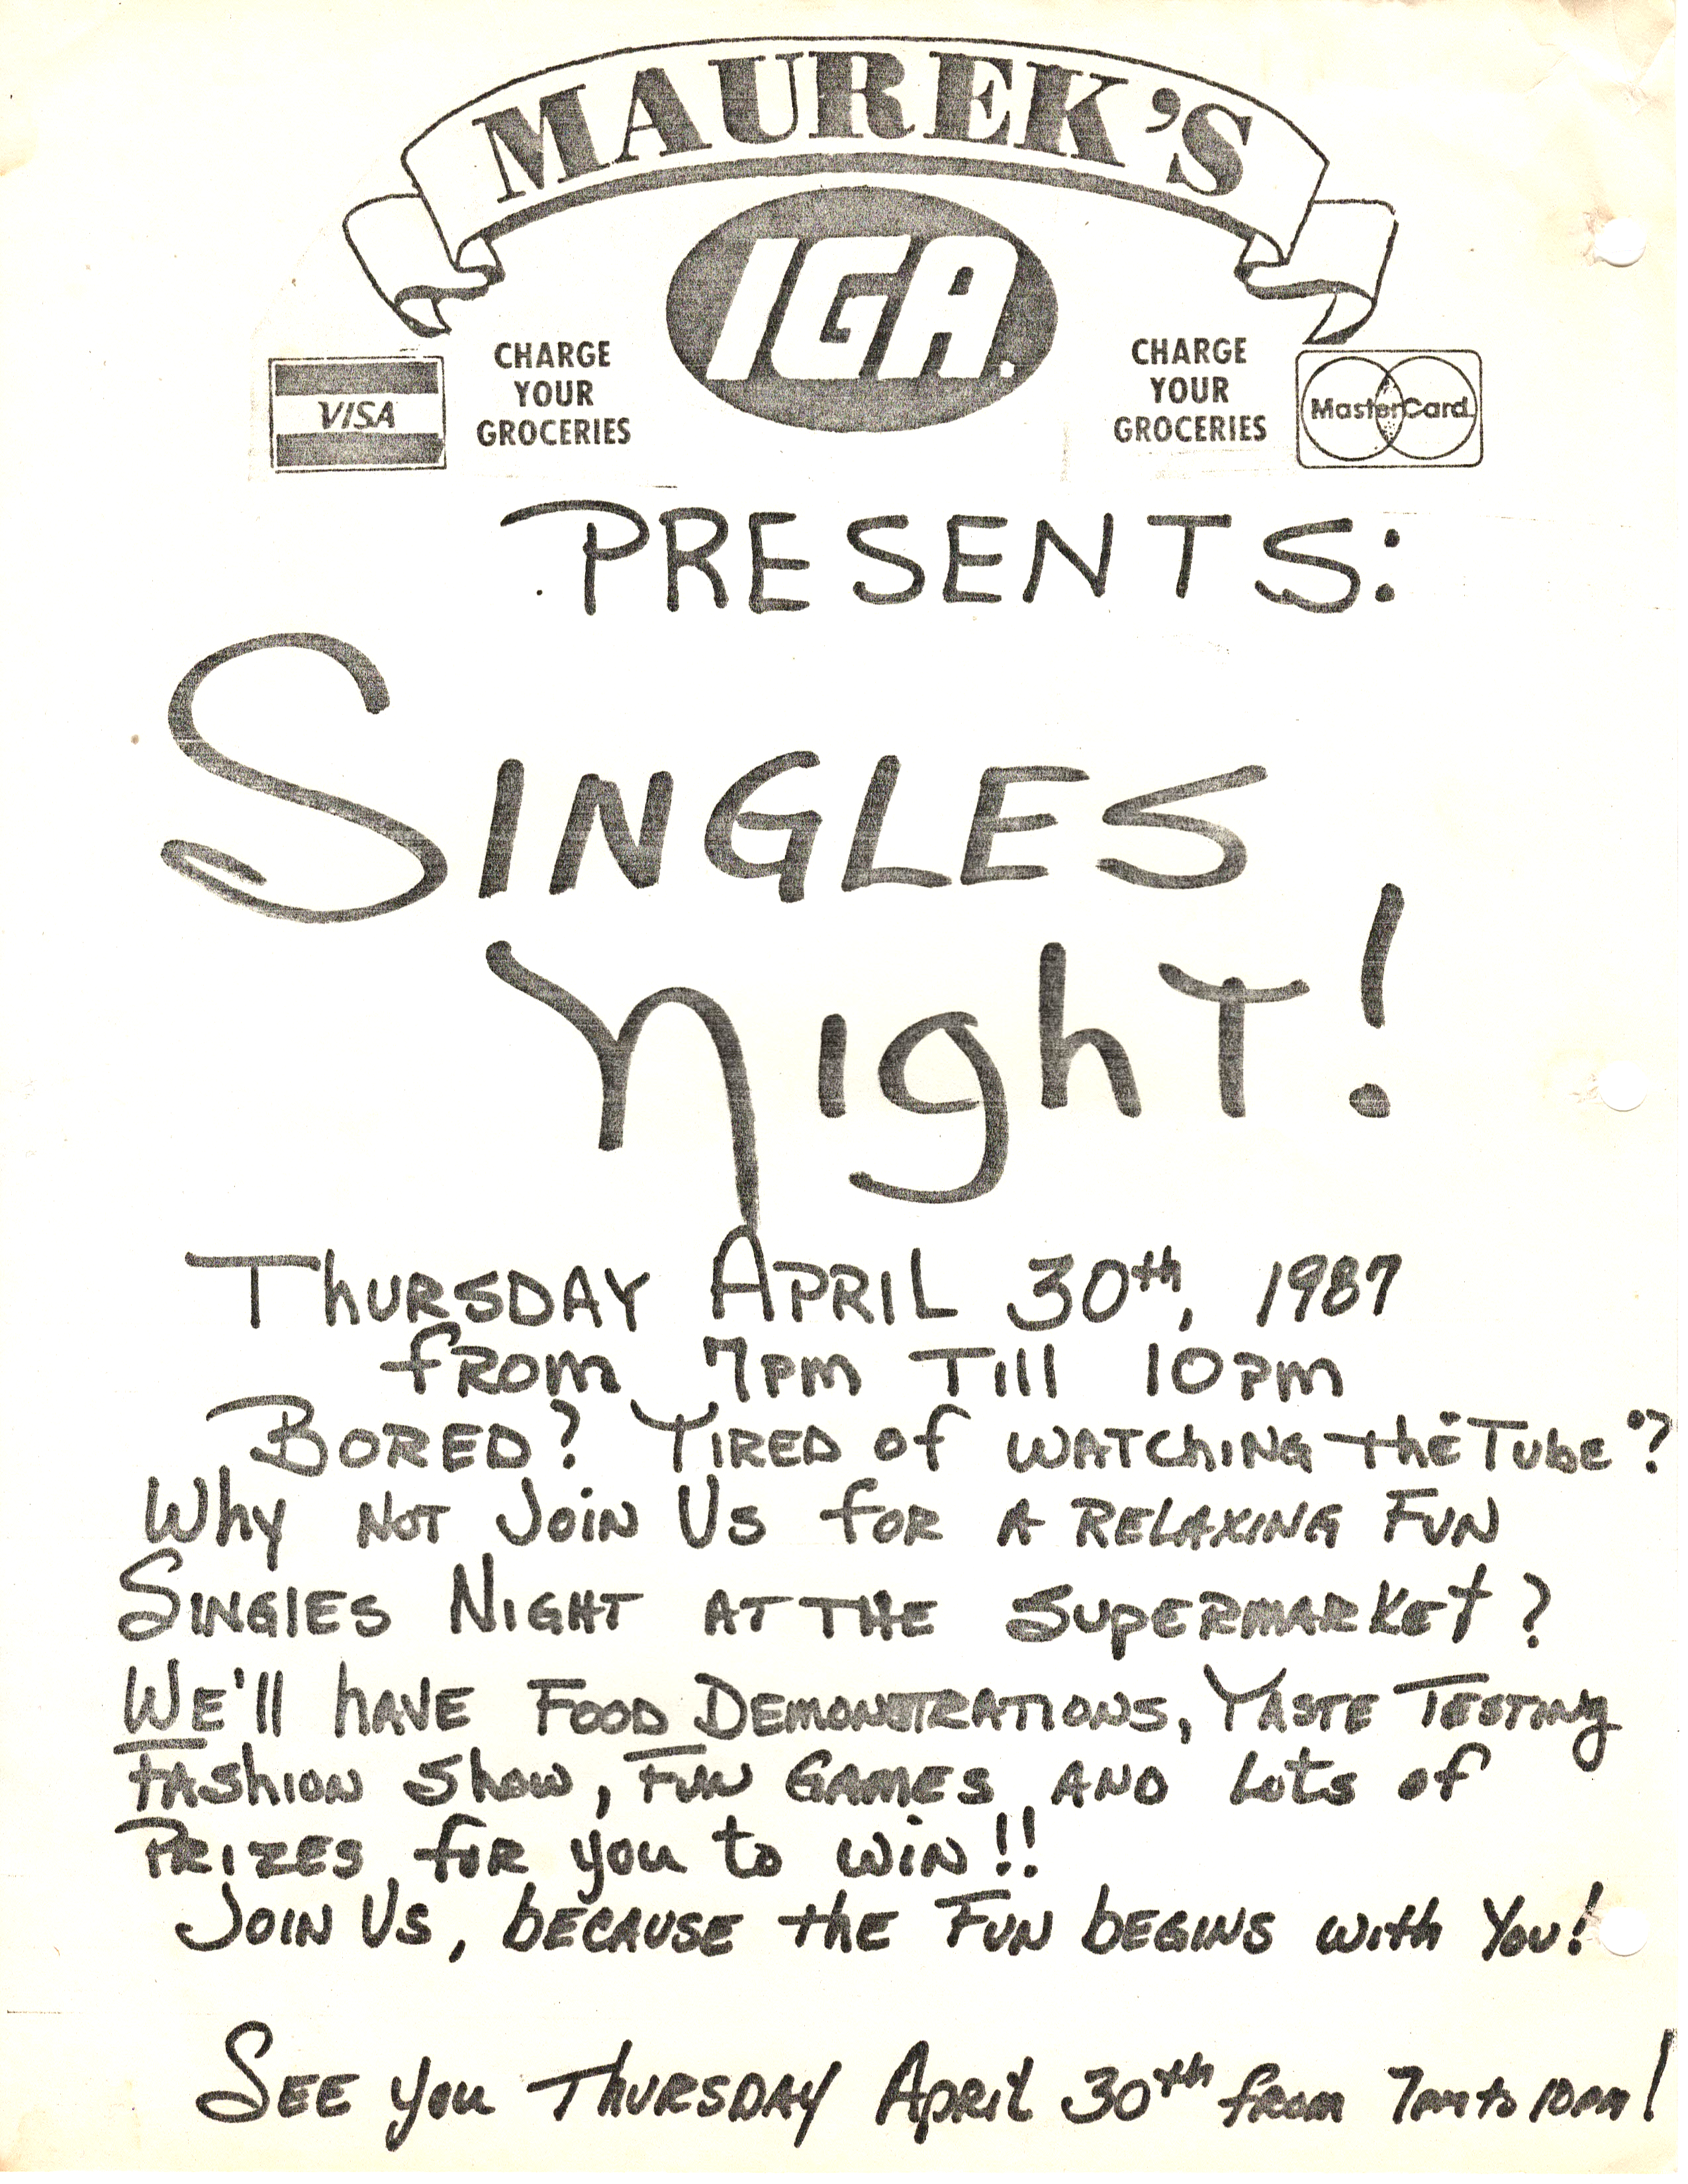 MAUREK'S
IGA.
VISA
CHARGE
YOUR
GROCERIES
CHARGE
YOUR
GROCERIES
MasterCard
PRESENTS:
SINGLES
Night!
Thursday April 30th, 1987
from 7pm Till 10pm
Bored? Tired of watching the "Tube"?
Why not Join Us for a relaxing Fun
Singles Night at the Supermarket?
We'll have Food Demonstrations, Taste Testing
Fashion Show, Fun Games and Lots of
Prizes for you to win!!
Join Us, because the Fun begins with You!
See you Thursday April 30th from 7pm to 10pm!